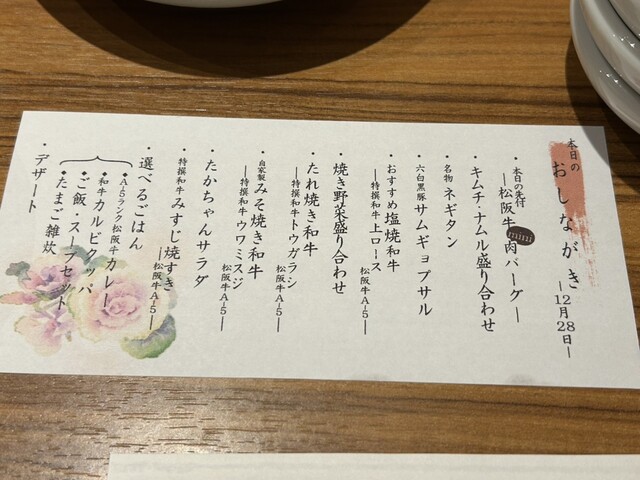 本日の おしながき ―12月28日―
・本日の先付
―松阪牛mini肉バーグ―
・キムチ・ナムル盛り合わせ
・名物 ネギタン
・六白黒豚 サムギョプサル
・おすすめ塩焼和牛
―特撰和牛 上ロース 松阪牛A-5―
・焼き野菜盛り合わせ
・たれ焼き和牛
―特撰和牛 トウガラシ 松阪牛A-5―
・自家製 みそ焼き和牛
―特撰和牛 ウワミスジ 松阪牛A-5―
・たかちゃんサラダ
・特撰和牛 みすじ焼すき
―松阪牛A-5―
・選べるごはん
◆A-5ランク 松阪牛 カレー
◆和牛 カルビクッパ
◆ご飯・スープセット
◆たまご雑炊
・デザート